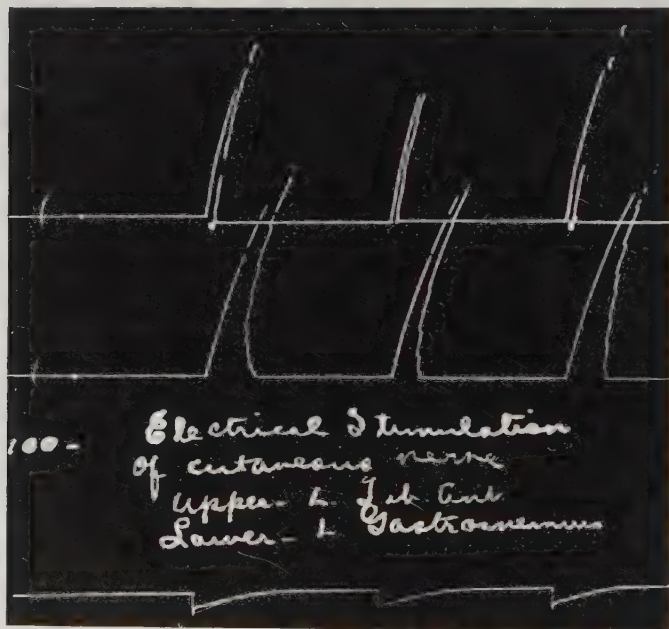 Electrical Stimulation
100-
of cutaneous nerve
Upper - L Tib Ant
Lower - L Gastrocnemius